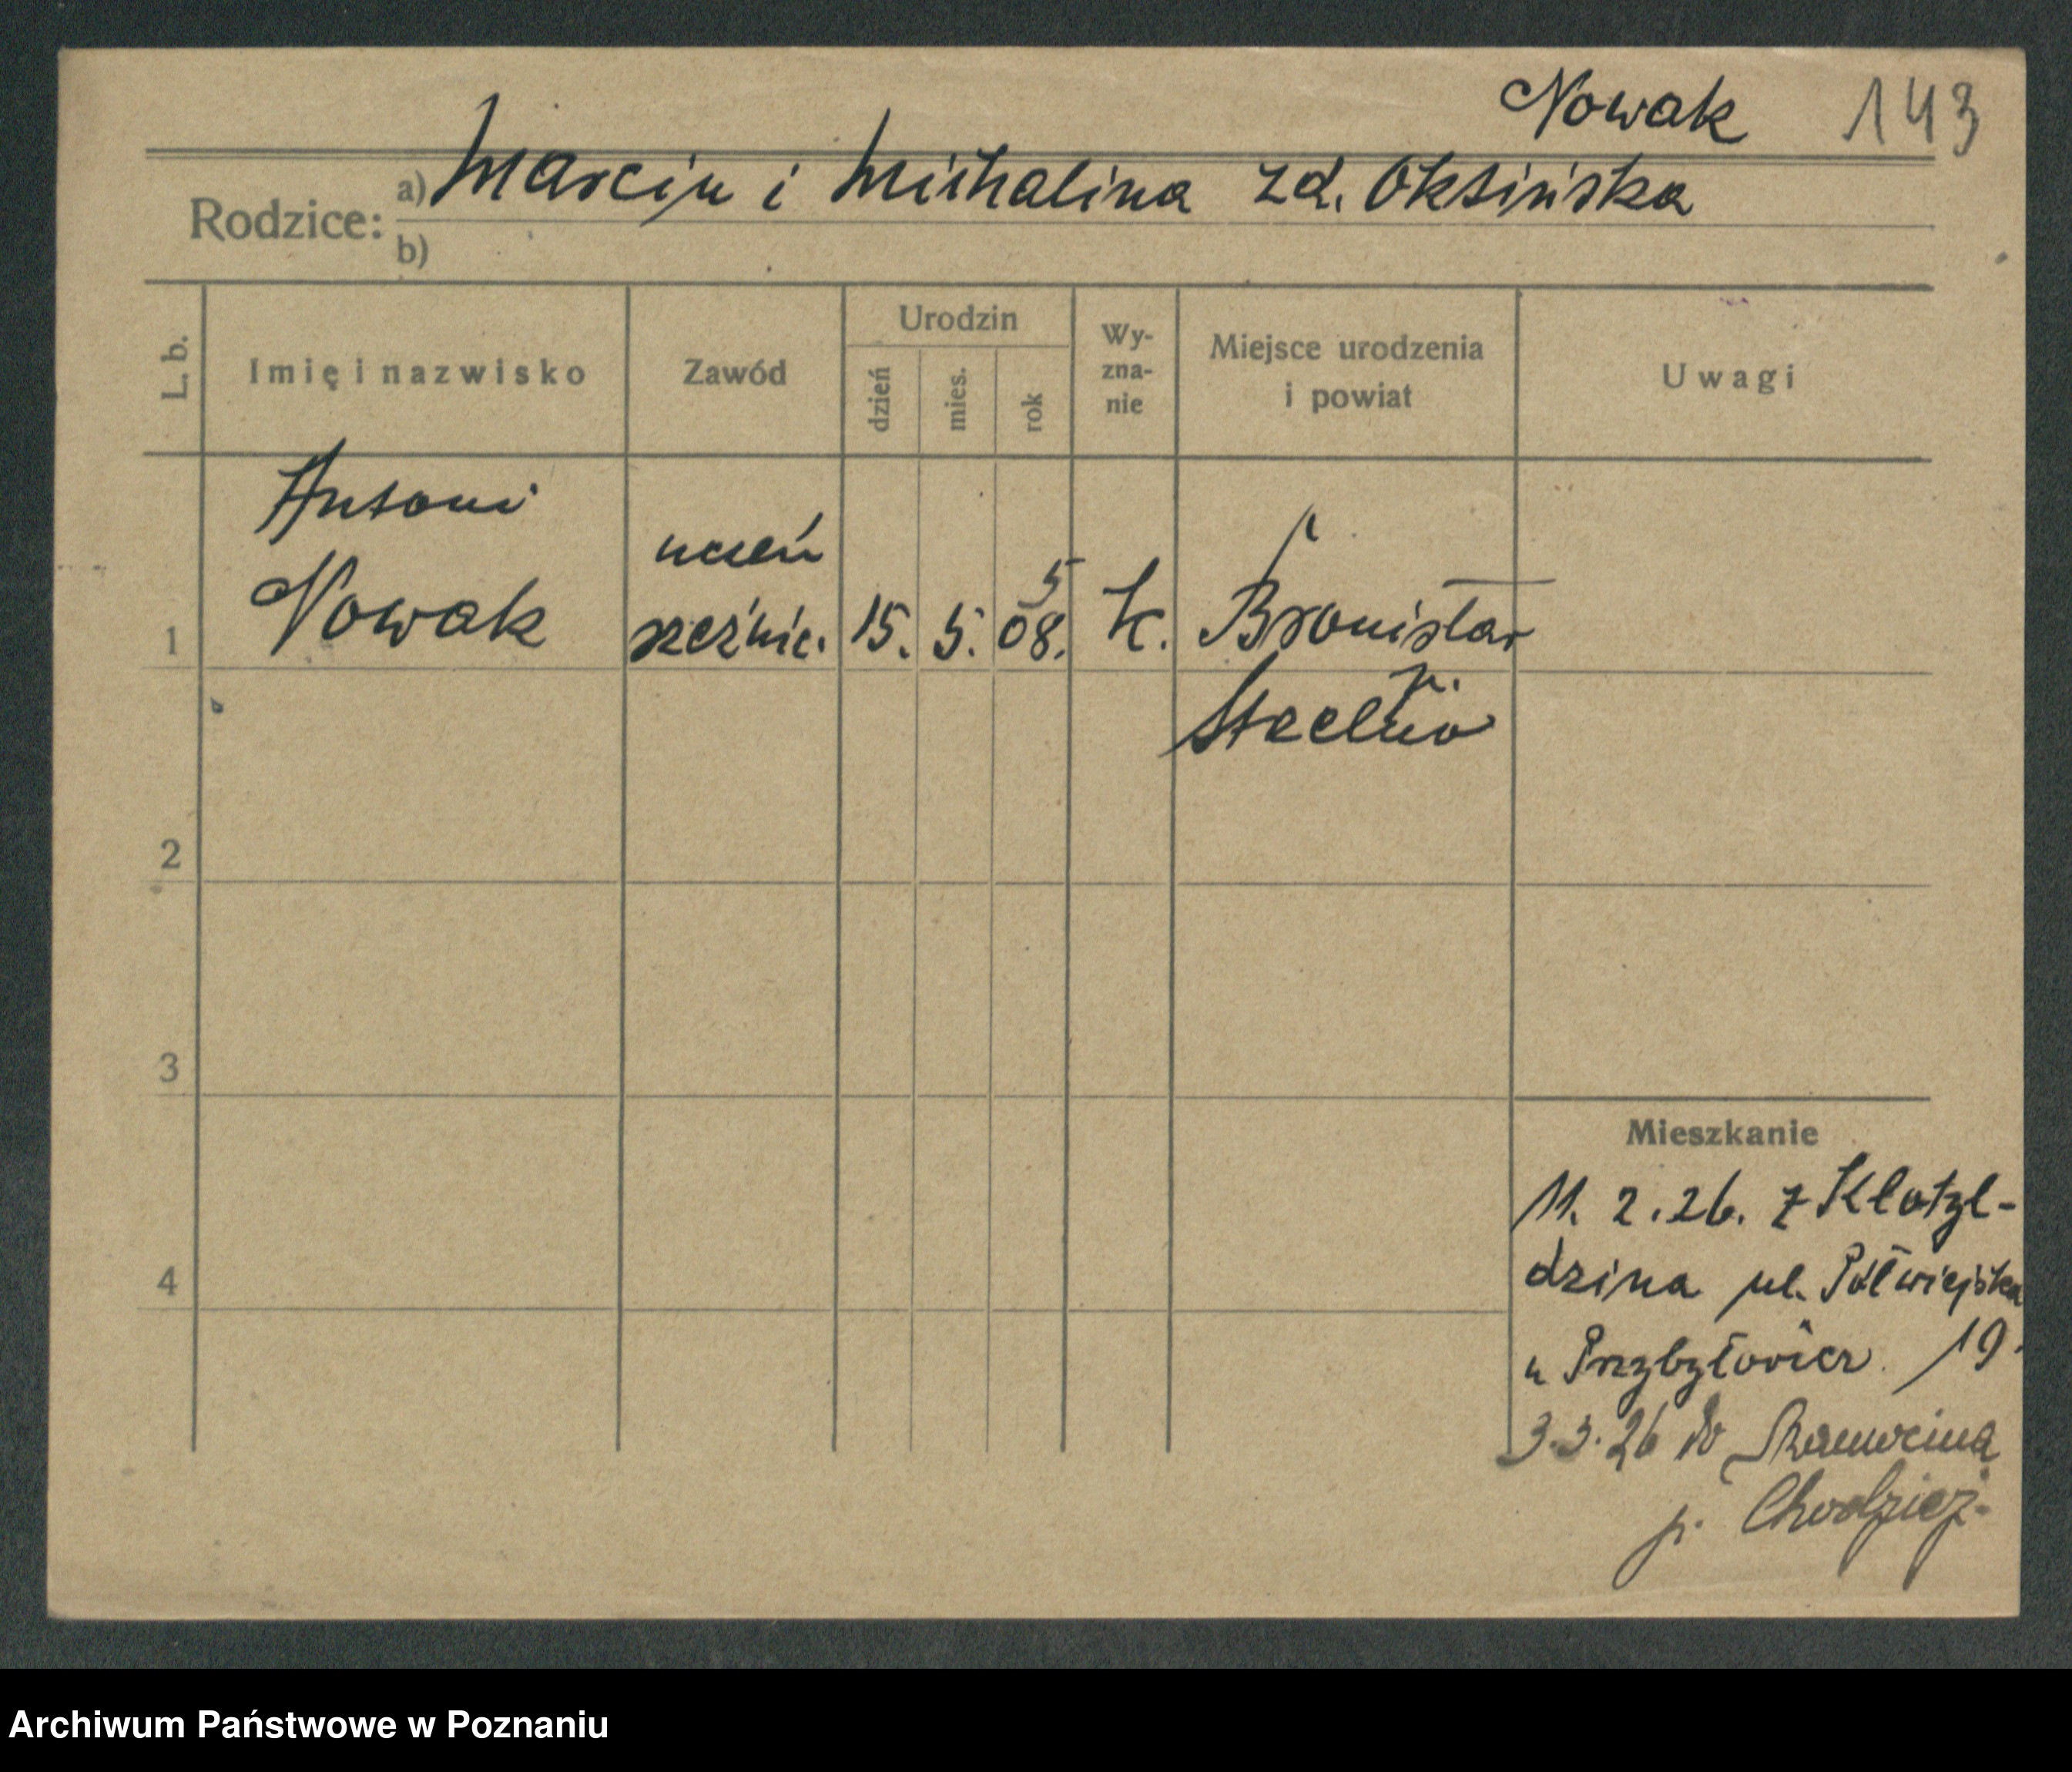 Nowak 143
Rodzice: a) Marcin i Michalina zd. Oksińska
b)
L. b. Imię i nazwisko Zawód Urodzin dzień mies. rok Wyzna-nie Miejsce urodzenia i powiat Uwagi
Antoni
uczeń
1 Nowak rzeźnic. 15. 5. 08. 5 k. Bronisław
p.
Strzelno
2
3
Mieszkanie
11. 2. 26. z
4 dzina ul. Półwiejska
u Przybyłowicz. 19.
3.3.26 do Szamocina
p. Chodzież.
Archiwum Państwowe w Poznaniu